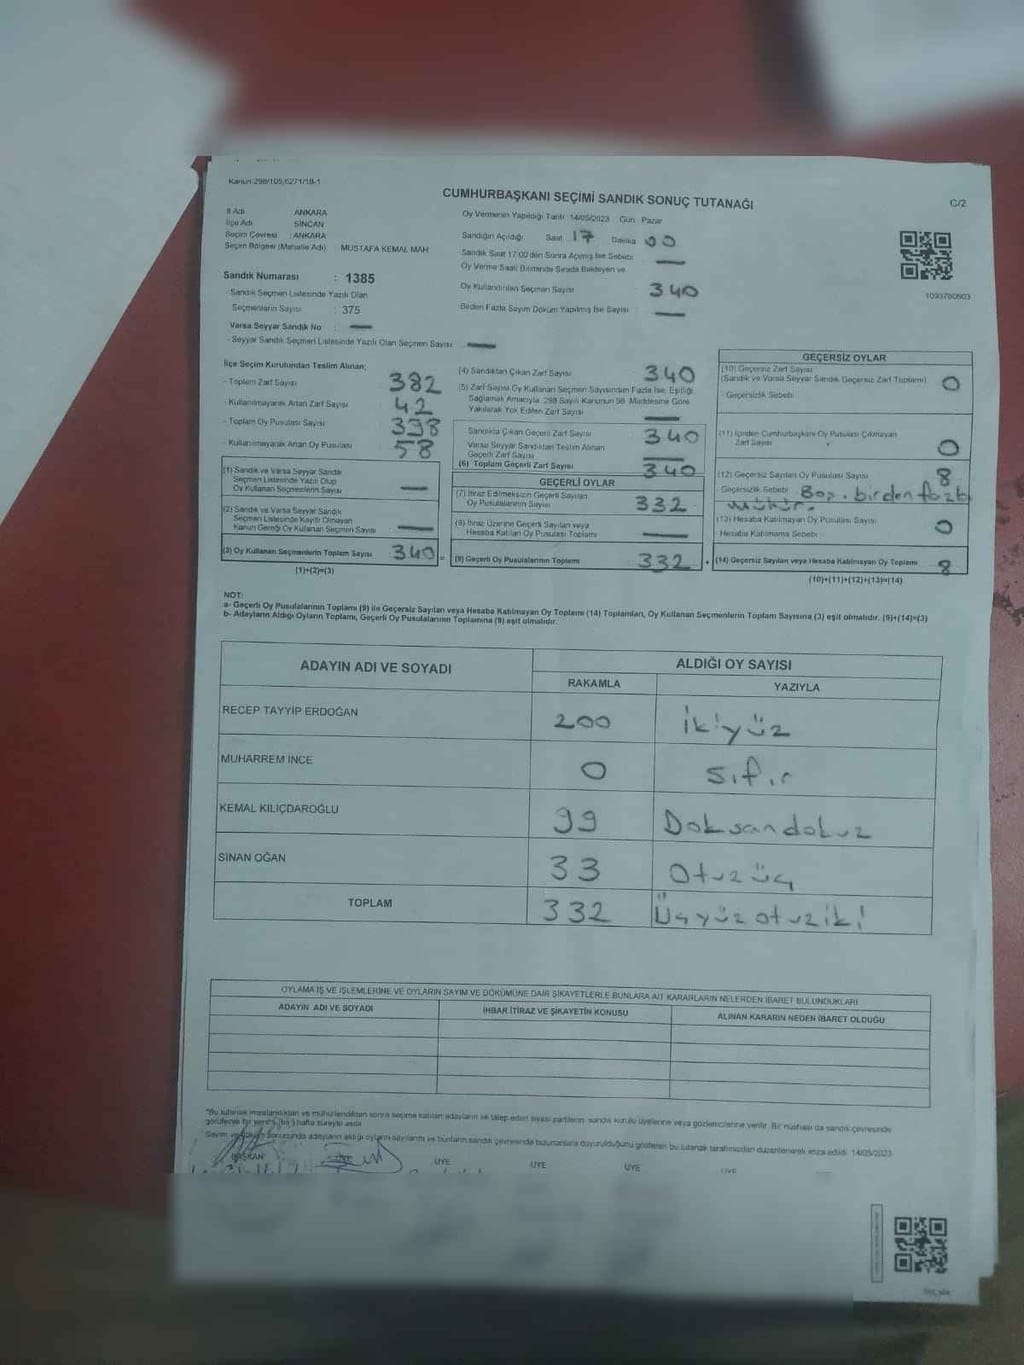 Kanun:298/105,6271/18-1
CUMHURBAŞKANI SEÇİMİ SANDIK SONUÇ TUTANAĞI
C/2
İl Adı ANKARA
İlçe Adı SİNCAN
Seçim Çevresi : ANKARA
Seçim Bölgesi (Mahalle Adı) MUSTAFA KEMAL MAH
Sandık Numarası : 1385
- Sandık Seçmen Listesinde Yazılı Olan
Seçmenlerin Sayısı : 375
Varsa Seyyar Sandık No —
- Seyyar Sandık Seçmen Listesinde Yazılı Olan Seçmen Sayısı —
Oy Vermenin Yapıldığı Tarih 14/05/2023 Gün Pazar
Sandığın Açıldığı Saat 17 Dakika 00
Sandık Saat 17:00'den Sonra Açılmış İse Sebebi —
Oy Verme Saati Bitiminde Sırada Bekleyen ve
Oy Kullandırılan Seçmen Sayısı 340
Birden Fazla Sayım Döküm Yapılmış İse Sayısı —
1093780903
İlçe Seçim Kurulundan Teslim Alınan;
- Toplam Zarf Sayısı 382
- Kullanılmayarak Artan Zarf Sayısı 42
- Toplam Oy Pusulası Sayısı 398
- Kullanılmayarak Artan Oy Pusulası 58
(1) Sandık ve Varsa Seyyar Sandık
Seçmen Listesinde Yazılı Olup
Oy Kullanan Seçmenlerin Sayısı —
(2) Sandık ve Varsa Seyyar Sandık
Seçmen Listesinde Kayıtlı Olmayan
Kanun Gereği Oy Kullanan Seçmen Sayısı —
(3) Oy Kullanan Seçmenlerin Toplam Sayısı 340 =
(1)+(2)=(3)
(4) Sandıktan Çıkan Zarf Sayısı 340
(5) Zarf Sayısı Oy Kullanan Seçmen Sayısından Fazla İse, Eşitliği
Sağlamak Amacıyla 298 Sayılı Kanunun 98. Maddesine Göre
Yakılarak Yok Edilen Zarf Sayısı —
Sandıkta Çıkan Geçerli Zarf Sayısı 340
Varsa Seyyar Sandıktan Teslim Alınan
Geçerli Zarf Sayısı —
(6) Toplam Geçerli Zarf Sayısı 340
GEÇERLİ OYLAR
(7) İtiraz Edilmeksizin Geçerli Sayılan
Oy Pusulalarının Sayısı 332
(8) İtiraz Üzerine Geçerli Sayılan veya
Hesaba Katılan Oy Pusulası Toplamı —
(9) Geçerli Oy Pusulalarının Toplamı 332 +
GEÇERSİZ OYLAR
(10) Geçersiz Zarf Sayısı
(Sandık ve Varsa Seyyar Sandık Geçersiz Zarf Toplamı) 0
- Geçersizlik Sebebi
(11) İçinden Cumhurbaşkanı Oy Pusulası Çıkmayan
Zarf Sayısı 0
(12) Geçersiz Sayılan Oy Pusulası Sayısı 8
Geçersizlik Sebebi Boş. birden fazla
mühür.
(13) Hesaba Katılmayan Oy Pusulası Sayısı 0
Hesaba Katılmama Sebebi
(14) Geçersiz Sayılan veya Hesaba Katılmayan Oy Toplamı 8
(10)+(11)+(12)+(13)=(14)
NOT:
a- Geçerli Oy Pusulalarının Toplamı (9) ile Geçersiz Sayılan veya Hesaba Katılmayan Oy Toplamı (14) Toplamları, Oy Kullanan Seçmenlerin Toplam Sayısına (3) eşit olmalıdır. (9)+(14)=(3)
b- Adayların Aldığı Oyların Toplamı, Geçerli Oy Pusulalarının Toplamına (9) eşit olmalıdır.
ADAYIN ADI VE SOYADI ALDIĞI OY SAYISI
RAKAMLA YAZIYLA
RECEP TAYYİP ERDOĞAN 200 ikiyüz
MUHARREM İNCE 0 sıfır
KEMAL KILIÇDAROĞLU 99 Doksandokuz
SİNAN OĞAN 33 Otuzüç
TOPLAM 332 Üçyüzotuziki
OYLAMA İŞ VE İŞLEMLERİNE VE OYLARIN SAYIM VE DÖKÜMÜNE DAİR ŞİKAYETLERLE BUNLARA AİT KARARLARIN NELERDEN İBARET BULUNDUKLARI
ADAYIN ADI VE SOYADI İHBAR İTİRAZ VE ŞİKAYETİN KONUSU ALINAN KARARIN NEDEN İBARET OLDUĞU
"Bu tutanak imzalandıktan ve mühürlendikten sonra seçime katılan adayların ve talep eden siyasi partilerin sandık kurulu üyelerine veya gözlemcilerine verilir. Bir nüshası da sandık çevresinde
görülecek bir yere (bir) hafta süreyle asılır.
Sayım ve döküm sonucunda adayların aldığı oyların sayılarını ve bunların sandık çevresinde bulunanlara duyurulduğunu gösteren bu tutanak tarafımızdan düzenlenerek imza edildi. 14/05/2023
BAŞKAN ÜYE ÜYE ÜYE ÜYE